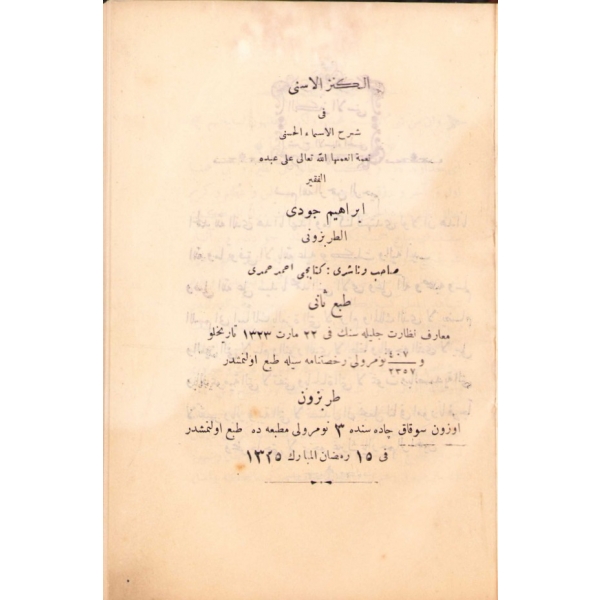 الكنز الاسنى
فى
شرح الاسماء الحسنى
نعمة انعمها الله تعالى على عبده
الفقير
ابراهيم جودى
الطربزونى
صاحب وناشرى : كتابجى احمد حمدى
طبع ثانى
معارف نظارت جليله سنك فى ٢٢ مارت ١٣٢٣ تاريخلو
و ٤٠٧/٢٣٥٧ نومرولى رخصتنامه سيله طبع اولنمشدر
طربزون
اوزون سوقاق جاده سنده ٣ نومرولى مطبعه ده طبع اولنمشدر
فى ١٥ رمضان المبارك ١٣٢٥